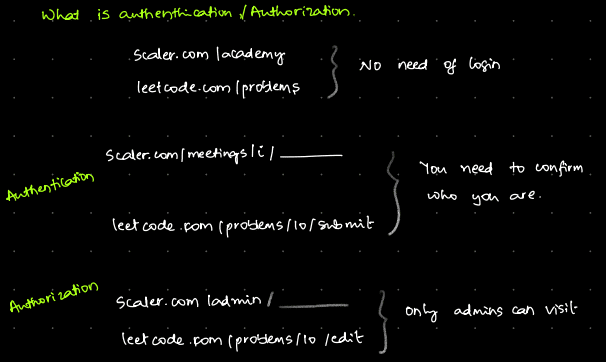 What is authenthication / Authorization.
Scaler.com/academy
leetcode.com/problems
No need of login
Scaler.com/meetings/i/______
Authentication
You need to confirm
who you are.
leetcode.com/problems/10/submit
Authorization
Scaler.com/admin/______
only admins can visit
leetcode.com/problems/10/edit